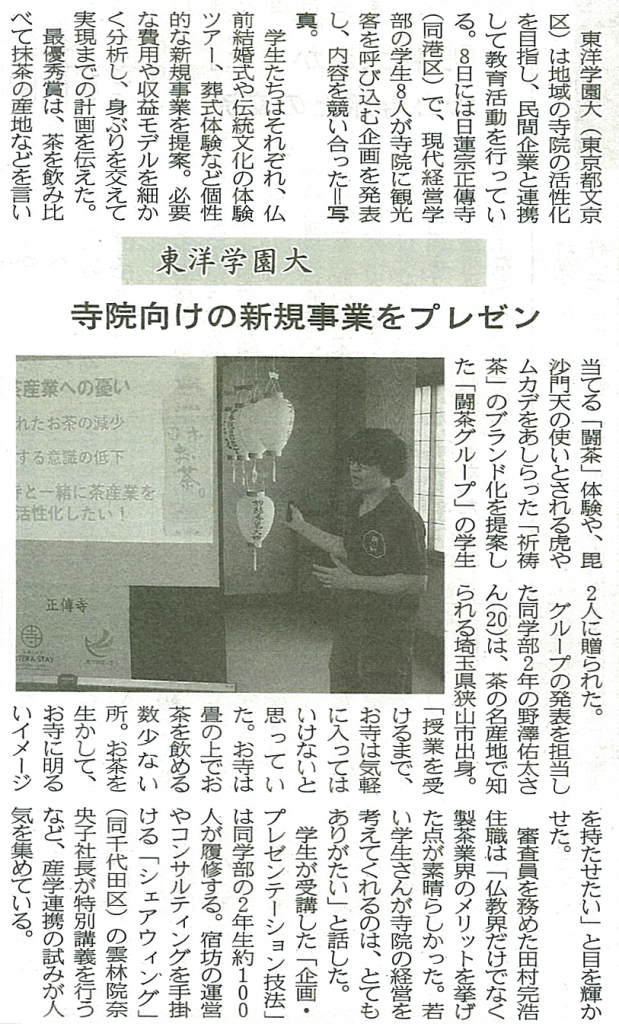 東洋学園大
寺院向けの新規事業をプレゼン
東洋学園大（東京都文京
区）は地域の寺院の活性化
を目指し、民間企業と連携
して教育活動を行ってい
る。8日には日蓮宗正傳寺
（同港区）で、現代経営学
部の学生8人が寺院に観光
客を呼び込む企画を発表
し、内容を競い合った＝写
真。
学生たちはそれぞれ、仏
前結婚式や伝統文化の体験
ツアー、葬式体験など個性
的な新規事業を提案。必要
な費用や収益モデルを細か
く分析し、身ぶりを交えて
実現までの計画を伝えた。
最優秀賞は、茶を飲み比
べて抹茶の産地などを言い
当てる「闘茶」体験や、毘
沙門天の使いとされる虎や
ムカデをあしらった「祈祷
茶」のブランド化を提案し
た「闘茶グループ」の学生
2人に贈られた。
グループの発表を担当し
た同学部2年の野澤佑太さ
ん（20）は、茶の名産地で知
られる埼玉県狭山市出身。
「授業を受
けるまで、
お寺は気軽
に入っては
いけないと
思ってい
た。お寺は
畳の上でお
茶を飲める
数少ない
所。お茶を
生かして、
お寺に明る
いイメージ
を持たせたい」と目を輝か
せた。
審査員を務めた田村完浩
住職は「仏教界だけでなく
製茶業界のメリットを挙げ
た点が素晴らしかった。若
い学生さんが寺院の経営を
考えてくれるのは、とても
ありがたい」と話した。
学生が受講した「企画・
プレゼンテーション技法」
は同学部の2年生約100
人が履修する。宿坊の運営
やコンサルティングを手掛
ける「シェアウィング」
（同千代田区）の雲林院奈
央子社長が特別講義を行う
など、産学連携の試みが人
気を集めている。
茶産業への憂い
れたお茶の減少
する意識の低下
寺と一緒に茶産業を
活性化したい！
お茶。
正傳寺
TERA STAY